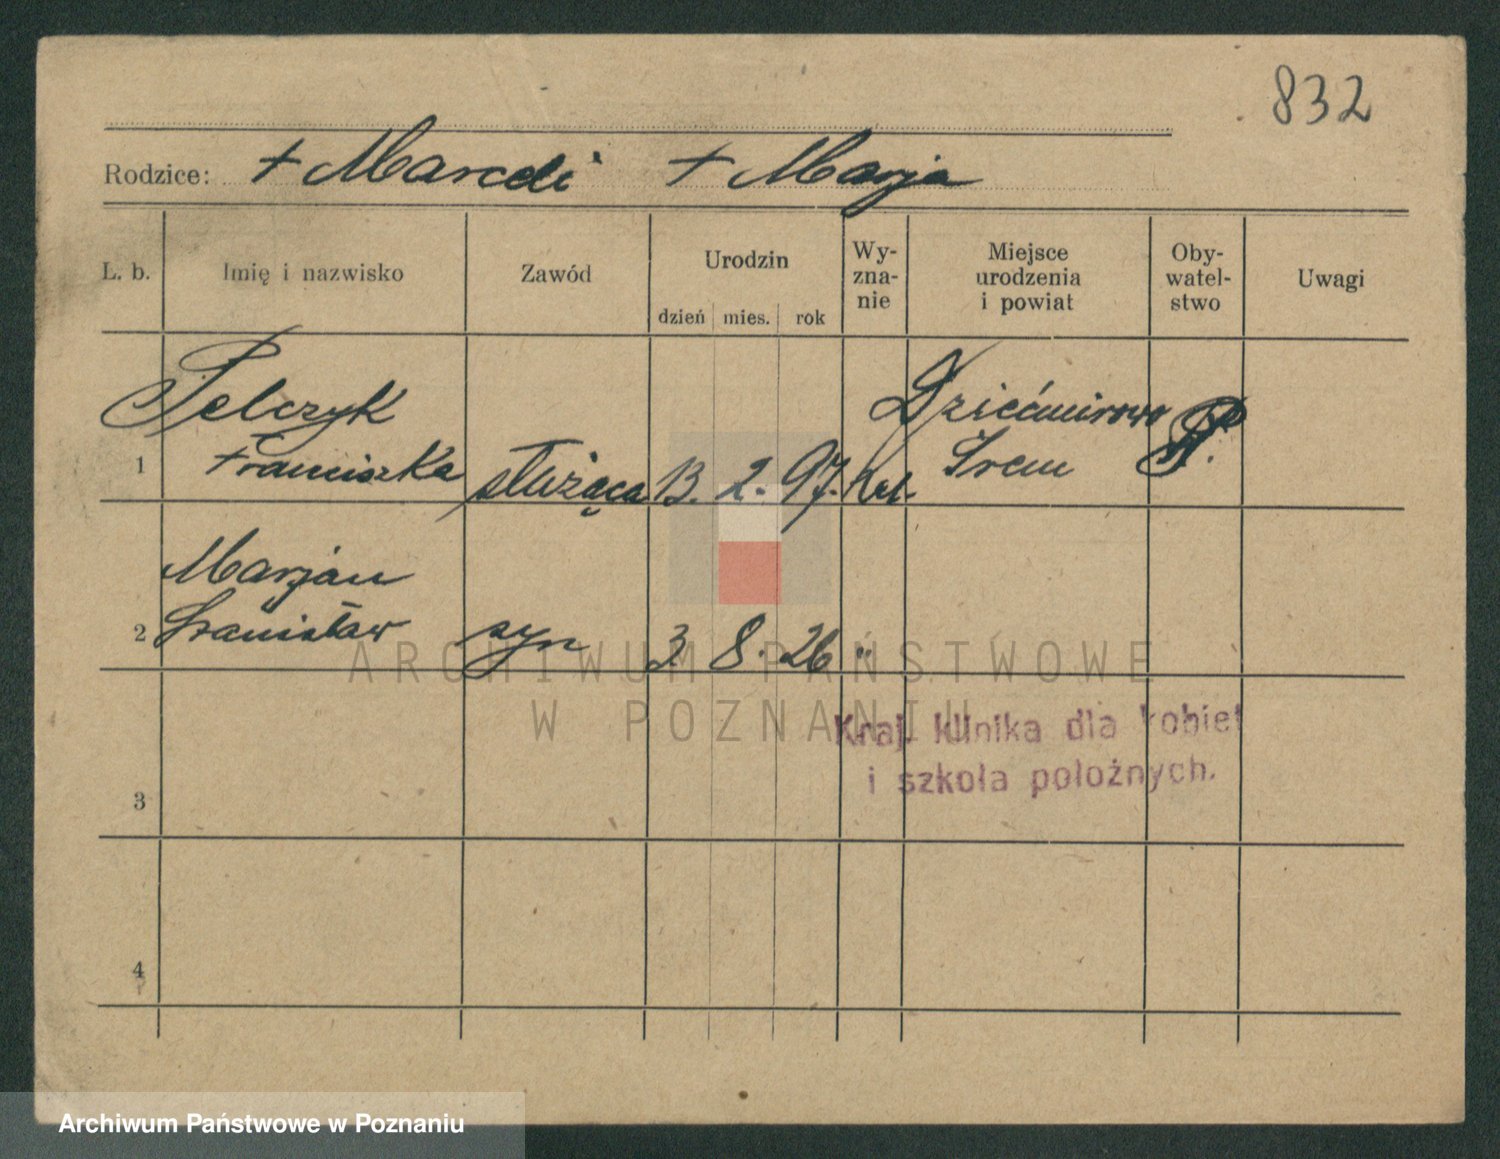 832
Rodzice: + Marceli + Marja
L. b. Imię i nazwisko Zawód Urodzin dzień mies. rok Wy-zna-nie Miejsce urodzenia i powiat Oby-watel-stwo Uwagi
Pelczyk Dziećmirowo
1 Franciszka służąca 13. 2. 97. kat. Śrem P.
Marjan
2 Stanisław syn 3. 8. 26 "
ARCHIWUM PAŃSTWOWE
W POZNANIU
Kraj. klinika dla kobiet
i szkoła położnych.
3
4
Archiwum Państwowe w Poznaniu